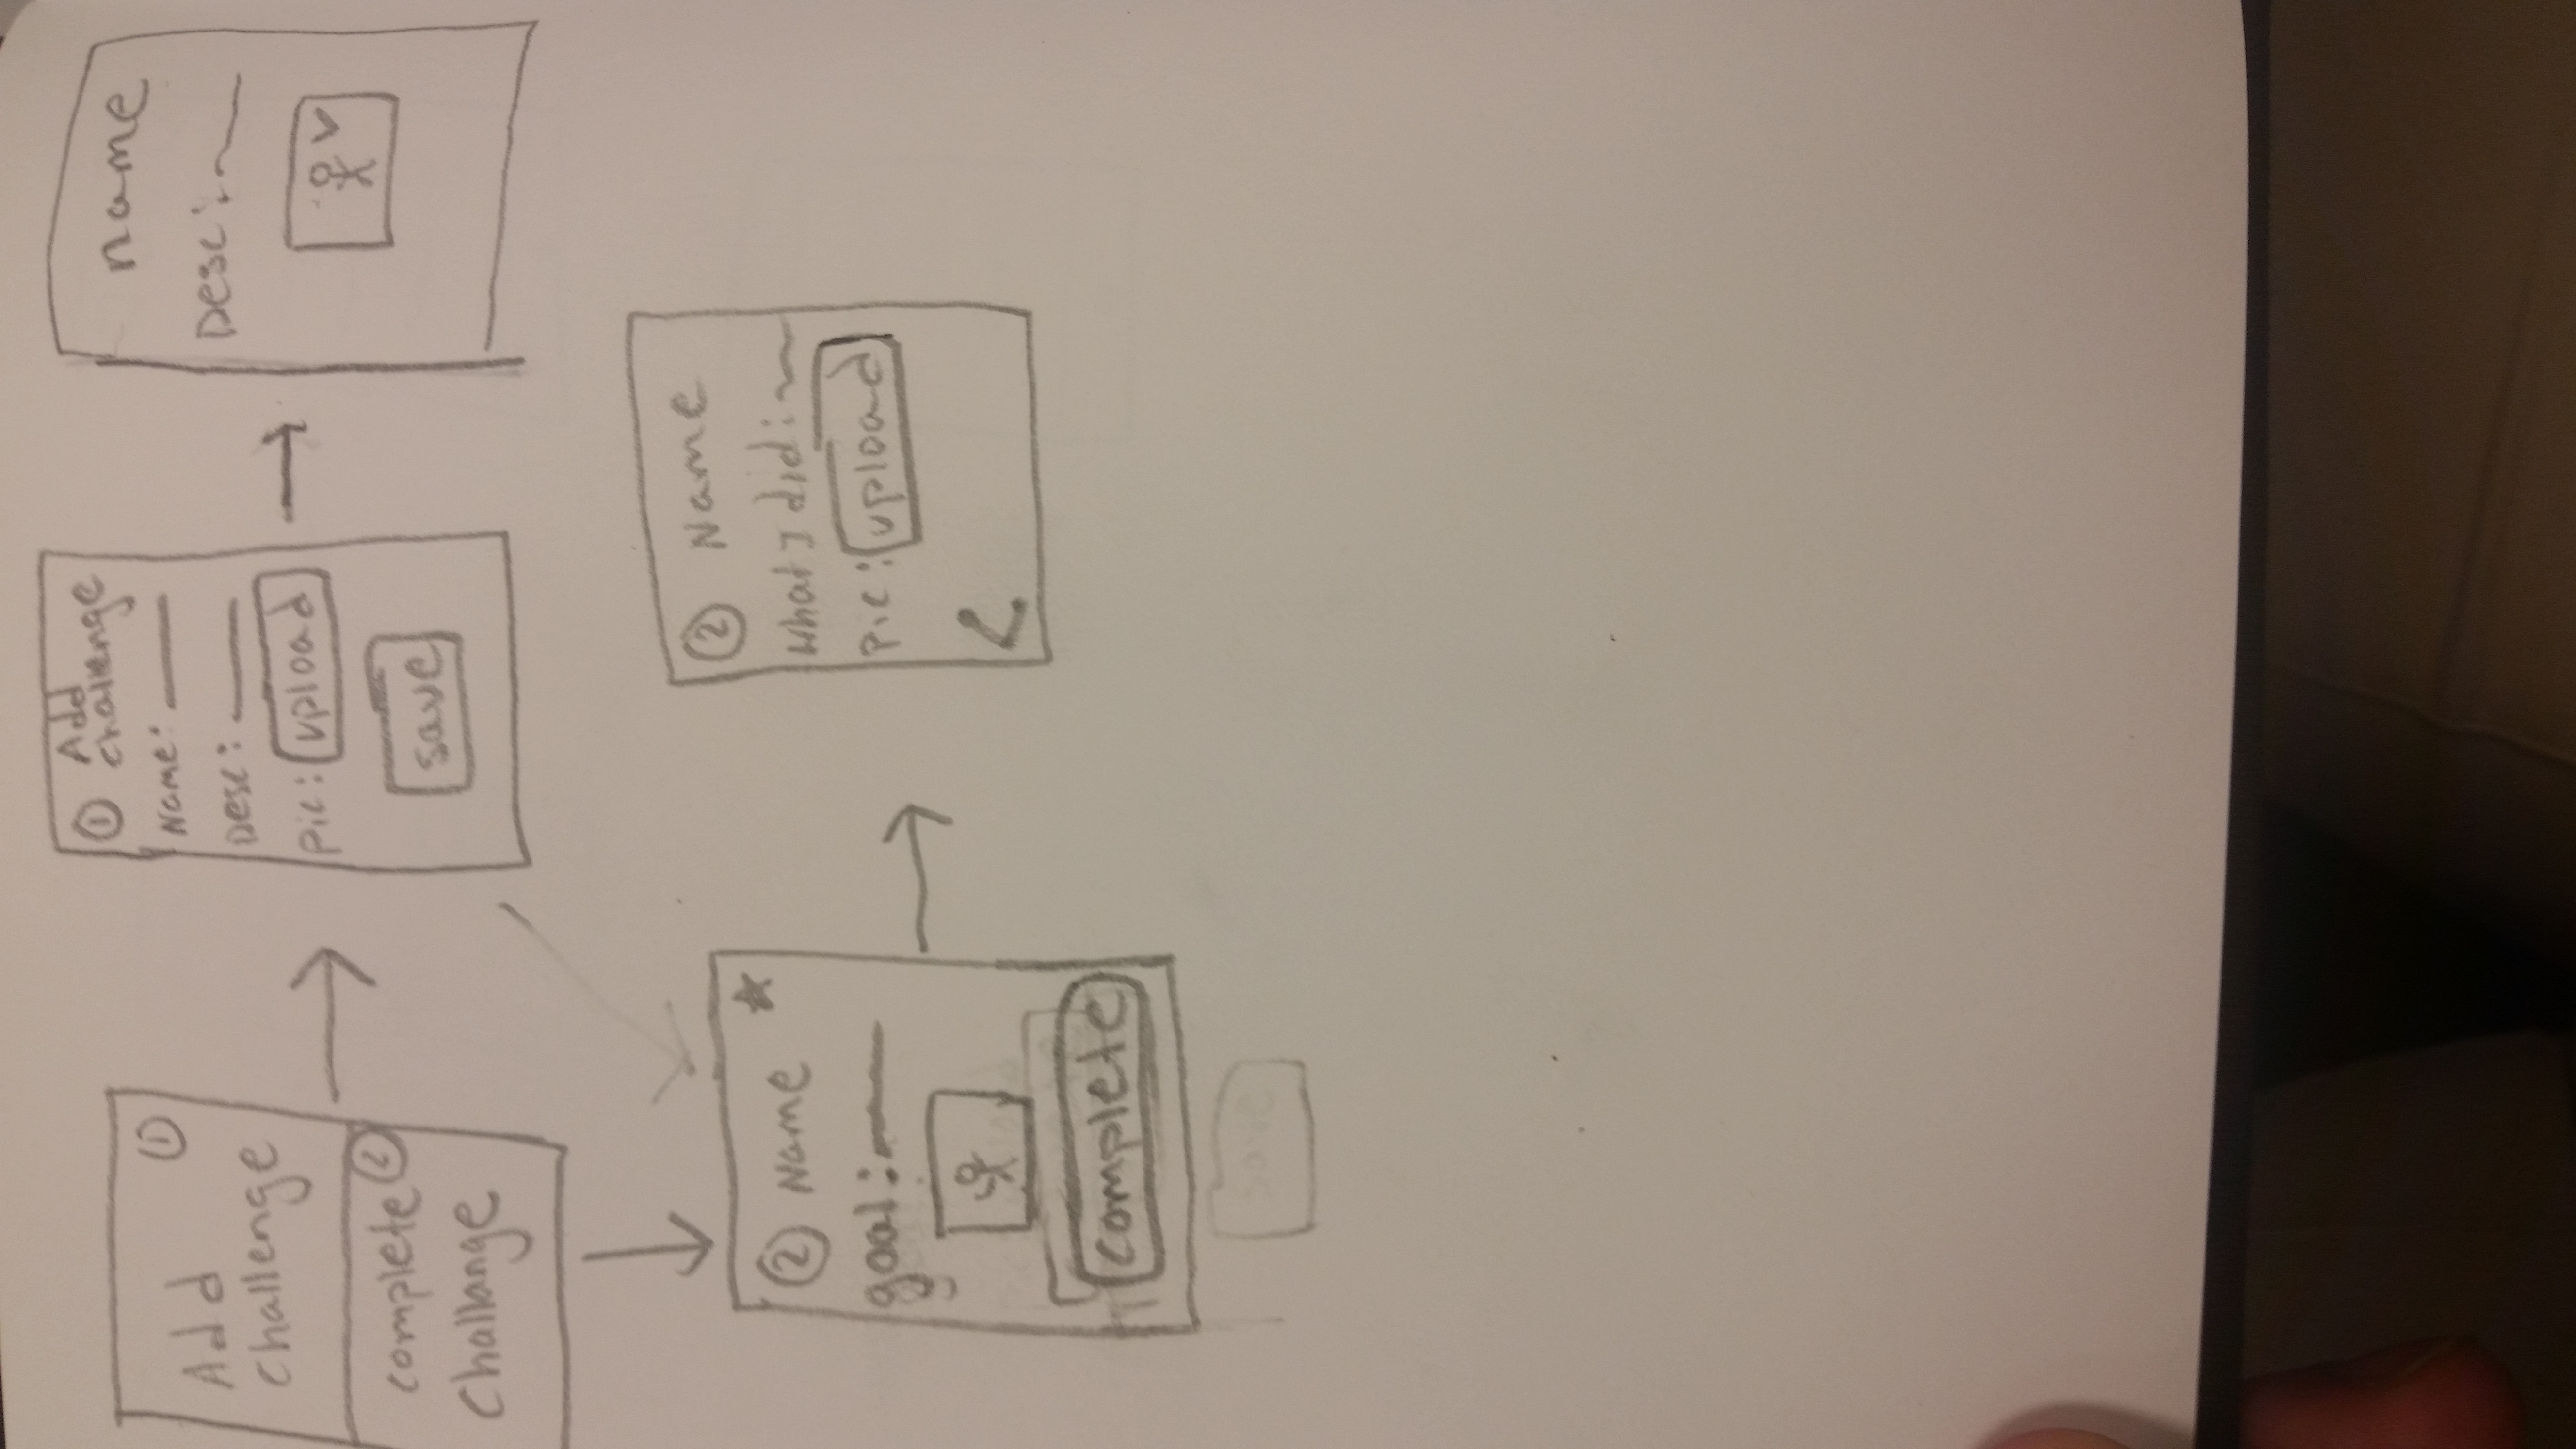 Add
Challenge
①
complete ②
Challange
① Add
challenge
Name:
Desc:
pic: upload
save
name
Desc:
② Name
goal:
complete
save
② Name
What I did:
pic: upload